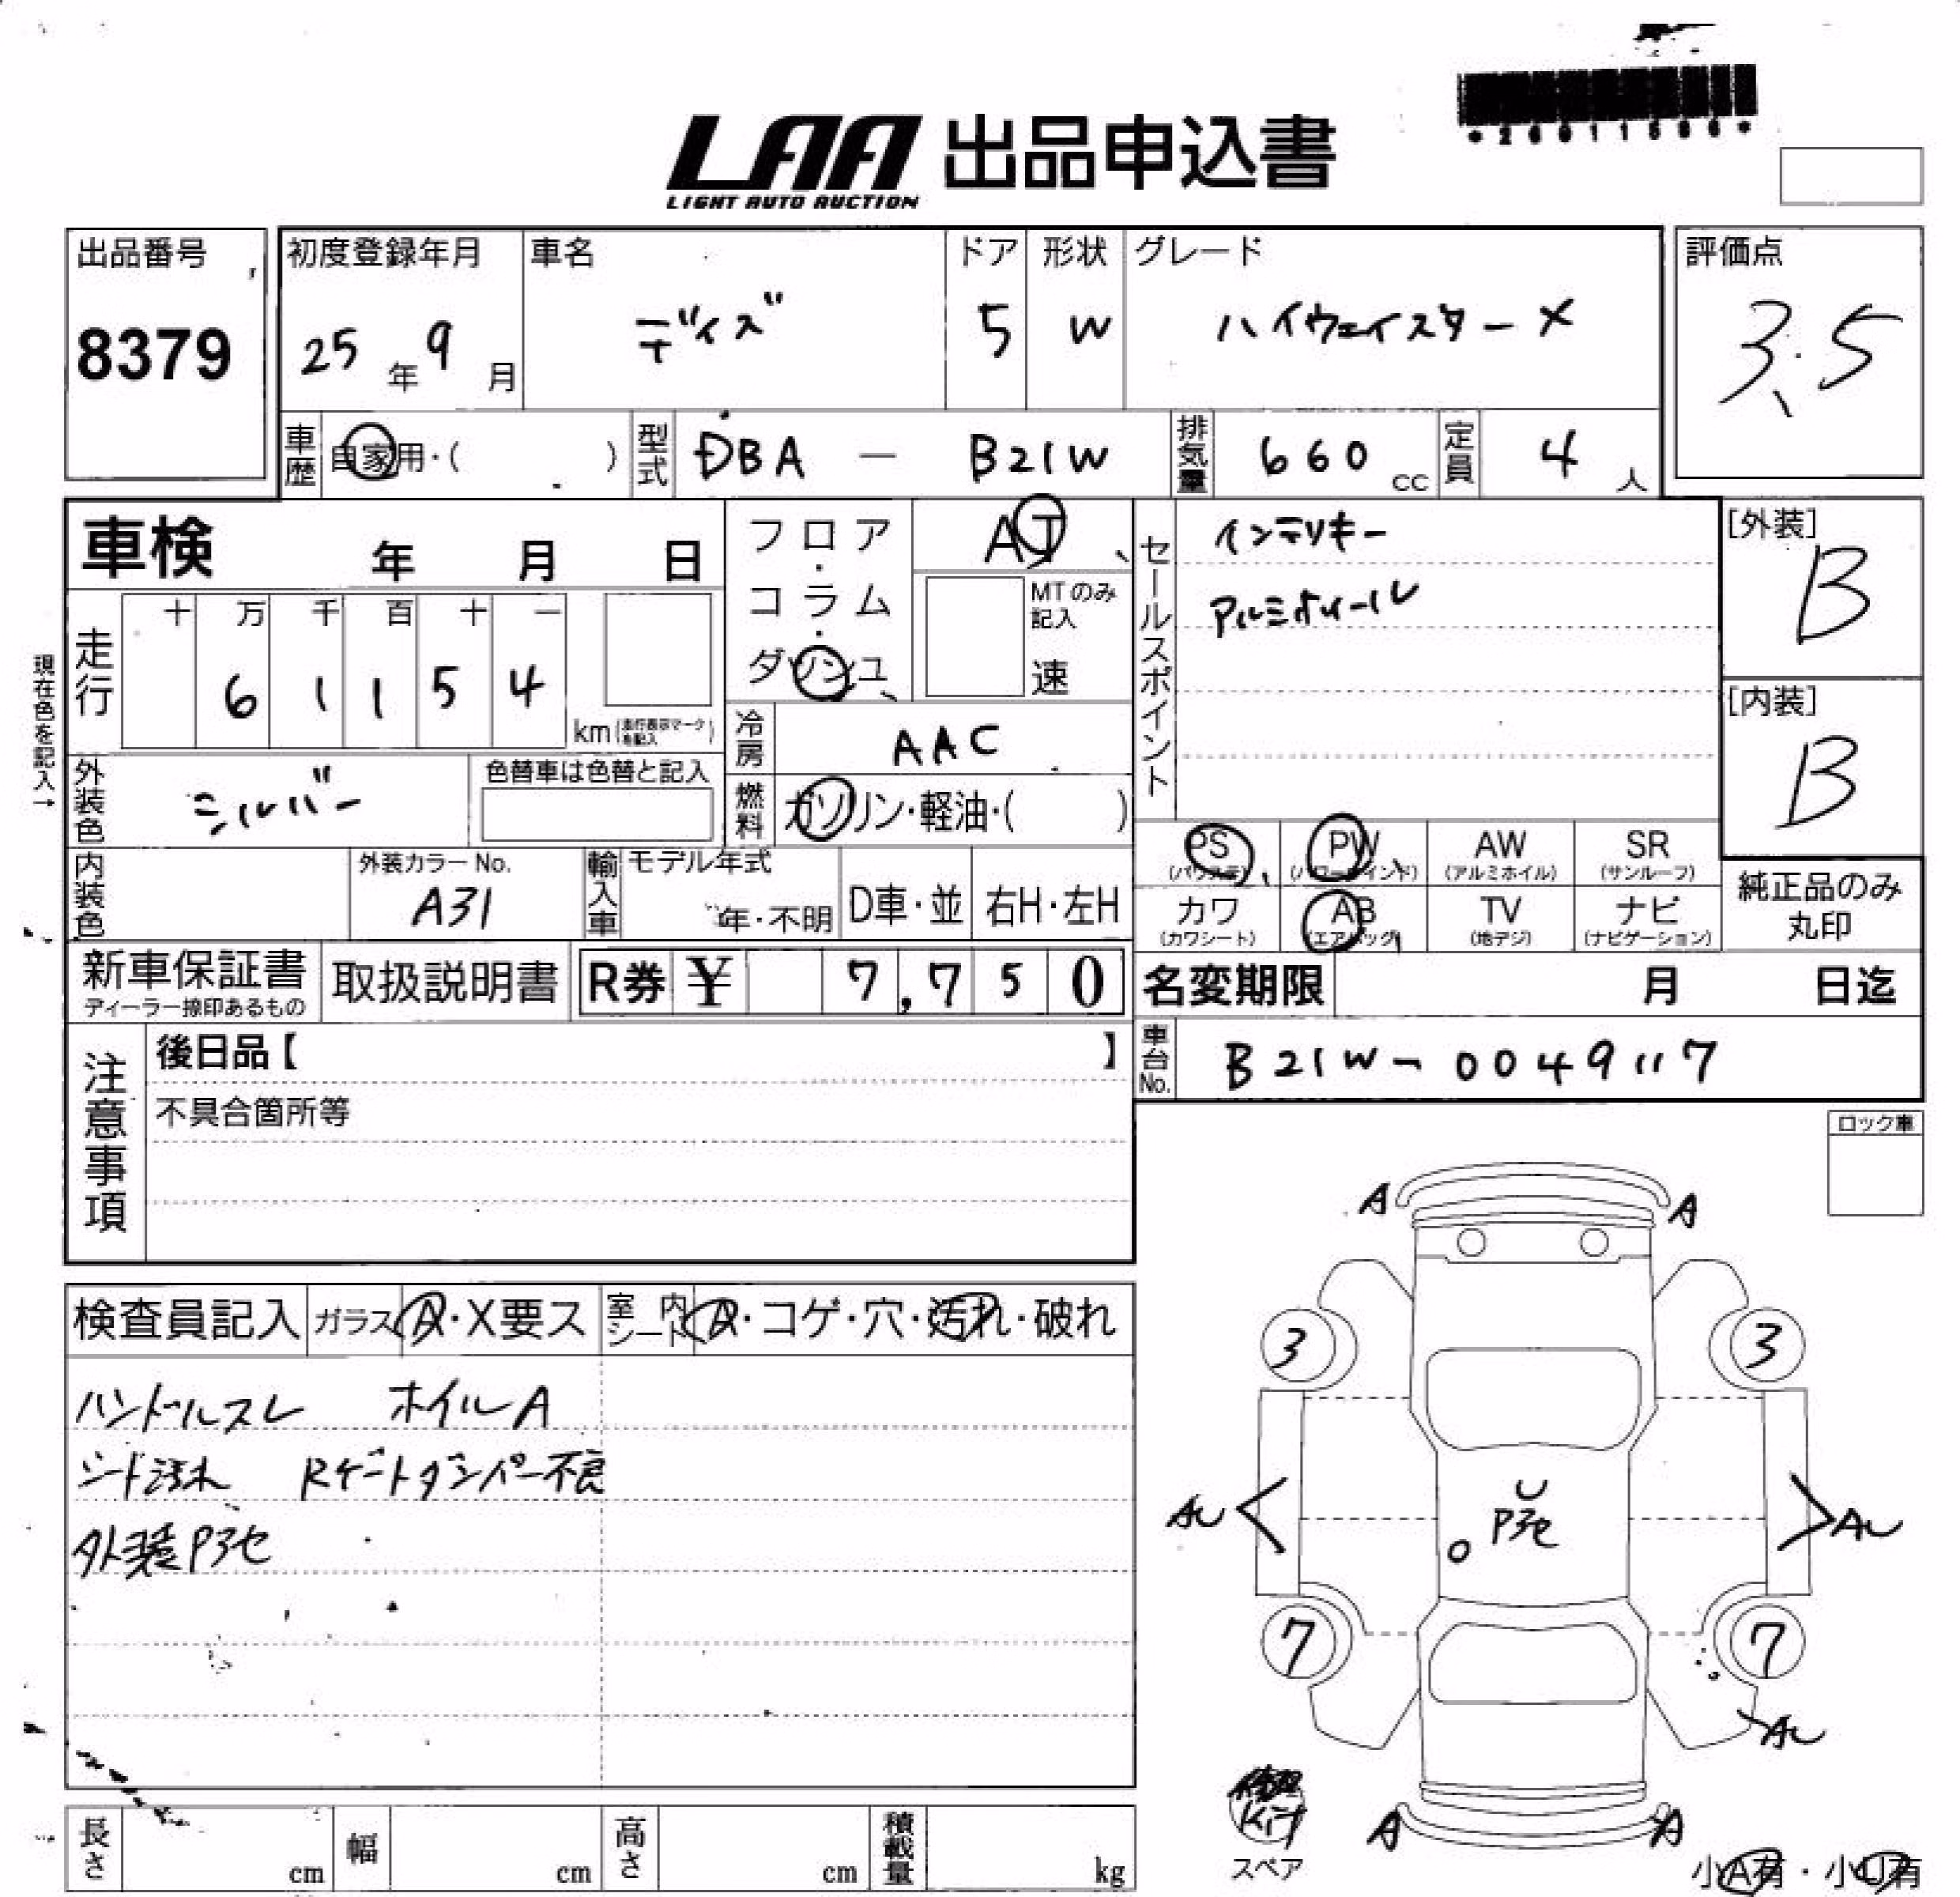 *26011566*
LAA 出品申込書
LIGHT AUTO AUCTION
出品番号 8379
初度登録年月 25年9月
車名 デイズ
ドア 5
形状 W
グレード ハイウェイスターX
評価点 3.5
車歴 自家用・( )
型式 DBA - B21W
排気量 660 cc
定員 4 人
車検 年 月 日
フロア・コラム・ダッシュ
AT
MTのみ記入 速
セールスポイント
インテリキー
アルミホイール
[外装] B
[内装] B
現在色を記入→
走行 十 万 千 百 十 一
6 1 1 5 4 km (走行表示マークを記入)
冷房 AAC
外装色 シルバー
色替車は色替と記入
燃料 ガソリン・軽油・( )
内装色
外装カラーNo. A31
輸入車 モデル年式 年・不明 D車・並 右H・左H
PS (パワステ) PW (パワーウインド) AW (アルミホイル) SR (サンルーフ)
カワ (カワシート) AB (エアバッグ) TV (地デジ) ナビ (ナビゲーション)
純正品のみ丸印
新車保証書 ディーラー捺印あるもの
取扱説明書
R券 ¥ 7,750
名変期限 月 日迄
注意事項
後日品【 】
不具合箇所等
車台No. B21W-0049117
ロック車
検査員記入 ガラス A・X要ス 室内シート A・コゲ・穴・汚れ・破れ
ハンドルスレ ホイルA
シート汚れ Rゲートダンパー不良
外装Pヲセ
A A
3 3
AU AU
U
Pヲセ
7 7
AU
A A
修理Kit
スペア
小A有・小U有
長さ cm 幅 cm 高さ cm 積載量 kg